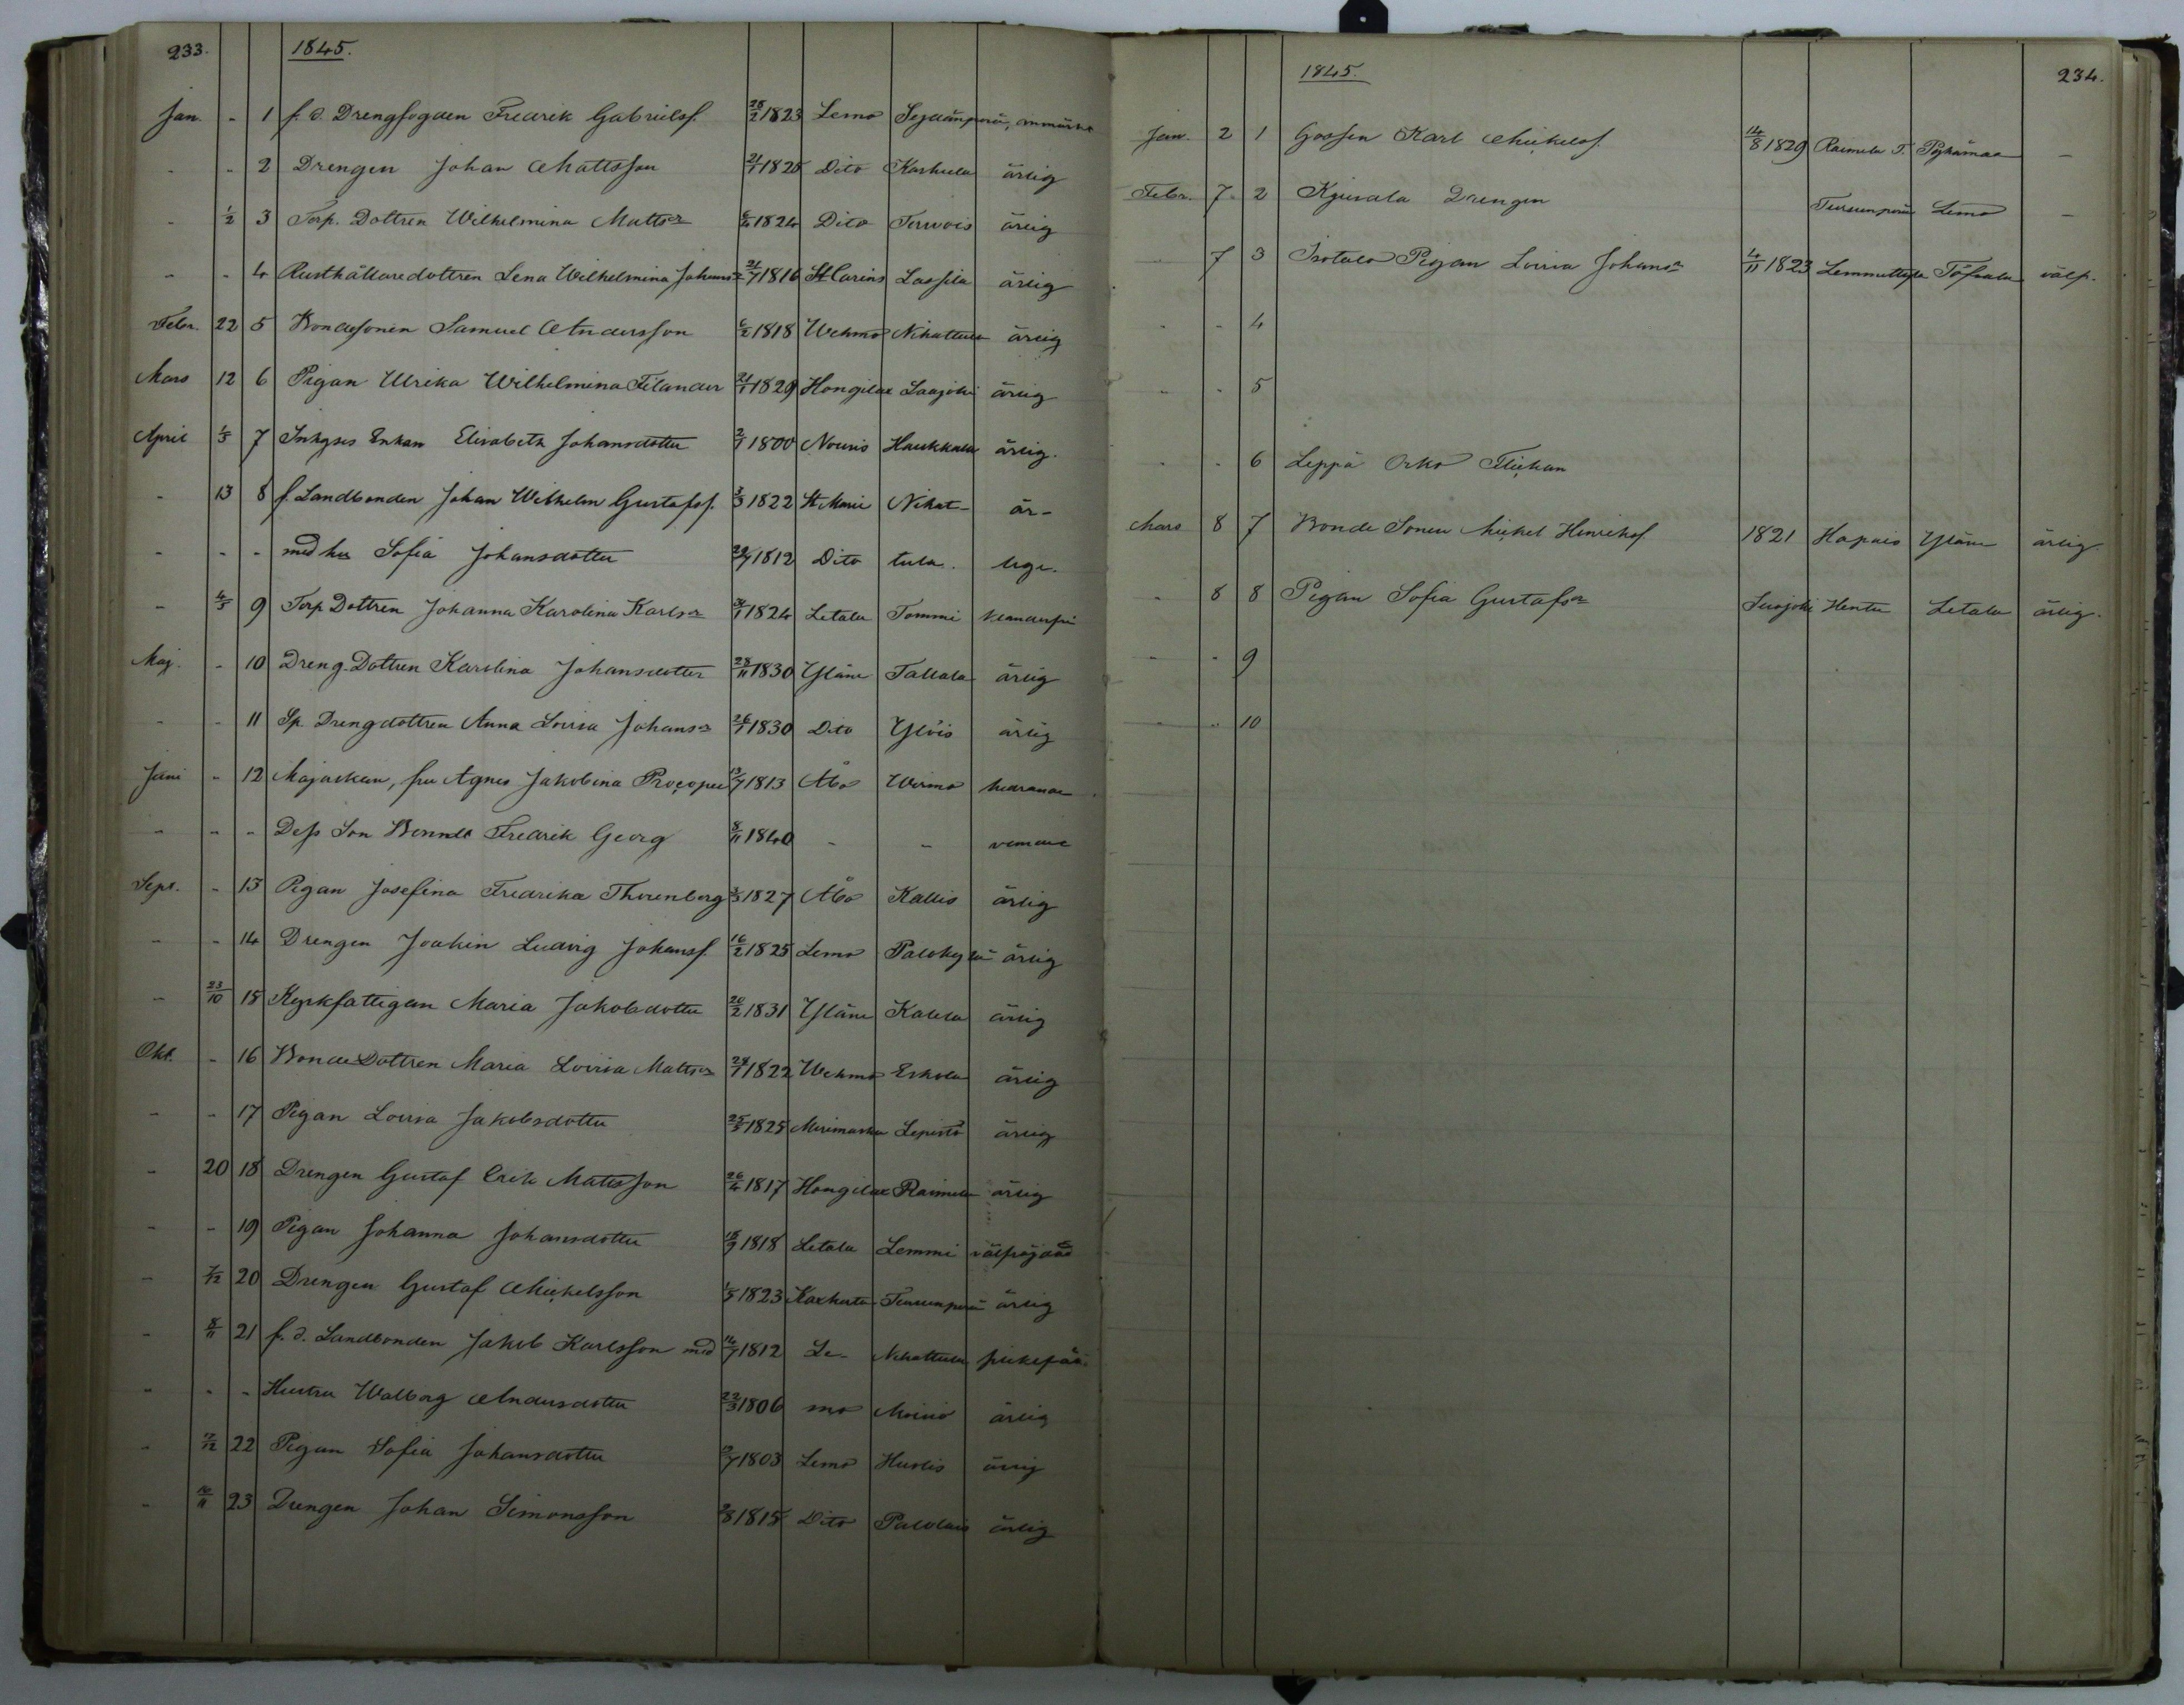 233.
1845.
Jan. - 1 f. d. Drengfogden Fredrik Gabrielsf. 28/2 1823 Lemo
- - 2 Drengen Johan Mattsson 21/1 1825 Dito Karhula ärlig
- 1/2 3 Torp. Dottren Wilhelmina Matts 1824 Dito Tervois ärlig
- - 4 Rusthållaredottren Lena Wilhelmina Johans 21/7 1816 St Carins Lassila ärlig
Febr. 22 5 Bondesonen Samuel Andersson 6/2 1818 Wehmo Nihattula ärlig
Mars 12 6 Pigan Ulrika Wilhelmina Filander 21/1 1829 Hongilax Laajoki ärlig
April 1/5 7 Inhyses Enkan Elisabeth Johansdotter 2/1 1800 Nousis Haukkala ärlig.
- 13 8 f. Landbonden Johan Wilhelm Gustafsf. 3/3 1822 St Marie Nihat- är-
- - - med hu Sofia Johansdotter 1812 Dito tula. liga.
- 4/5 9 Torp Dottren Johanna Karolina Karls 1824 Letala Tommi klanderfri
Maj. - 10 Dreng. Dottren Karolina Johansdotter 28/11 1830 Yläne Tallala ärlig
- - 11 Sp. Drengdottren Anna Lovisa Johans 26/1 1830 Dito Yliis ärlig
Juni - 12 Majorskan, fru Agnes Jakobina Procopee 13/7 1813 Åbo Wirmo hedrande
- - - Dess Son Berndt Fredrik Georg 8/11 1840 - -
Sept. - 13 Pigan Josefina Fredrika Thorenberg 3/5 1827 Åbo Kallis ärlig
- - 14 Drengen Joakin Ludvig Johansf. 16/2 1825 Lemo Palokylä ärlig
- 23/10 15 Kyrkfattigan Maria Jakobsdotter 20/2 1831 Yläne Kalela ärlig
Okt. - 16 Bonde Dottren Maria Lovisa Matts 29/7 1822 Wehmo Eskola ärlig
- - 17 Pigan Lovisa Jakobsdotter 25/5 1825 Merimasku Lepistö ärlig
- 20 18 Drengen Gustaf Erik Mattsson 26/4 1817 Hongilax Raimela ärlig
- - 19 Pigan Johanna Johansdotter 18/9 1818 Letala Lemmi välfrejdad
- 7/12 20 Drengen Gustaf Mickelsson 1/5 1823 Karkusta ärlig
- 8/11 21 f. d. Landbonden Jakob Karlsson med 14/7 1812 Le- Nihattula
- - - Hustru Walborg Andersdotter 22/3 1806 mo Moisio ärlig
- 7/12 22 Pigan Sofia Johansdotter 1803 Lemo Hurlis ärlig
- 10/11 23 Drengen Johan Simonsson 1815 Dito Palolais ärlig
1845.
234.
Jan. 2 1 Gossen Karl Mickelsf. 14/8 1829 Raimela T. Pyhämaa -
Febr. 7 2 Kyuvala Drengen Lemo -
7 3 Isotalo Pigan Lovisa Johans 4/11 1823 Töfsala välf.
- - 4
- - 5
- - 6 Leppä Orko Flickan
Mars 8 7 Bonde Sonen Mickel Henriksf 1821 Hapais Yläne ärlig.
- 8 8 Pigan Sofia Gustafs Laajoki Hentu Letala ärlig.
- - 9
- - 10